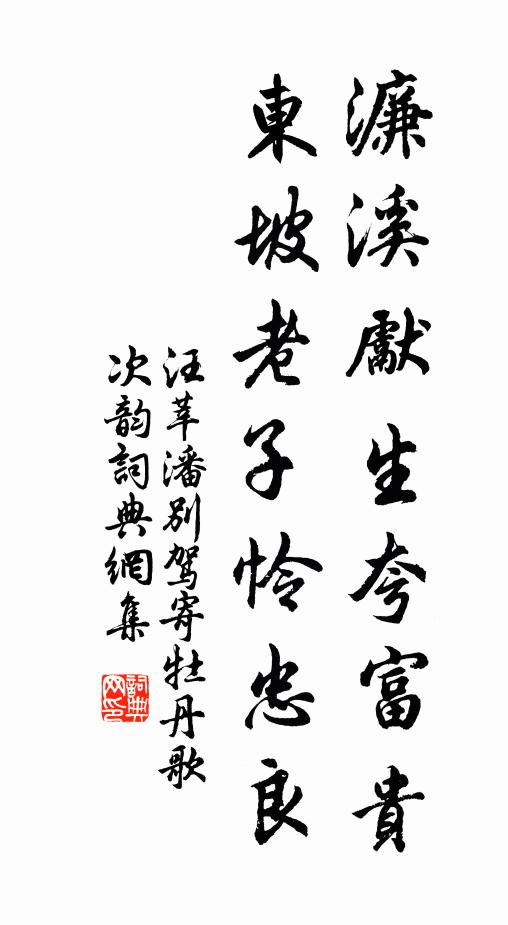 濂溪獻生夸富貴
東坡老子怜忠良
汪莘潘別駕寄牡丹歌
次韵詞典網集
詞典网印